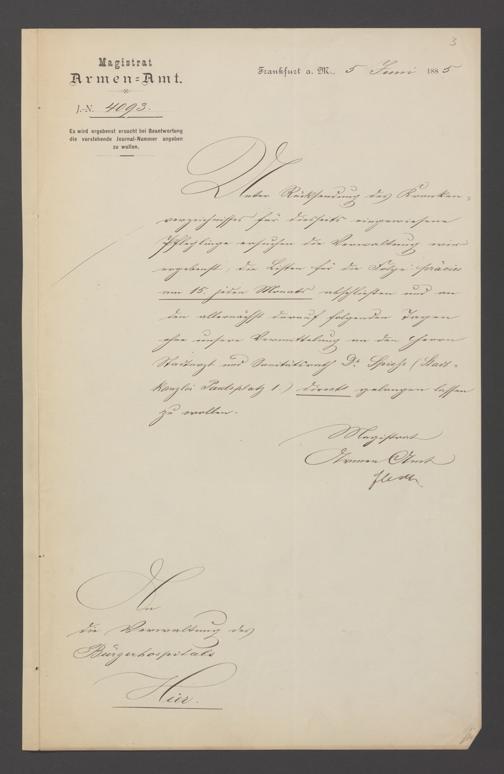 3
Magistrat
Armen=Amt.
J.-N. 4093.
Es wird ergebenst ersucht bei Beantwortung
die vorstehende Journal-Nummer angeben
zu wollen.
Frankfurt a. M., 5 Juni 1885
Unter Rücksendung des Kranken=
verzeichnisses für diesseits eingewiesene
Pfleglinge ersuchen die Verwaltung wir
ergebenst, die Listen für die Folge präcis
am 15. jeden Monats abschließen und an
den allernächst darauf folgenden Tagen
ohne unsere Vermittelung an den Herrn
Stadtarzt und Sanitätsrath Dr. Spiess (Stadt=
kanzlei Paulsplatz 1.) direkt gelangen lassen
zu wollen.
Magistrat
Armen Amt
An
die Verwaltung des
Bürgerhospitals
Hier.